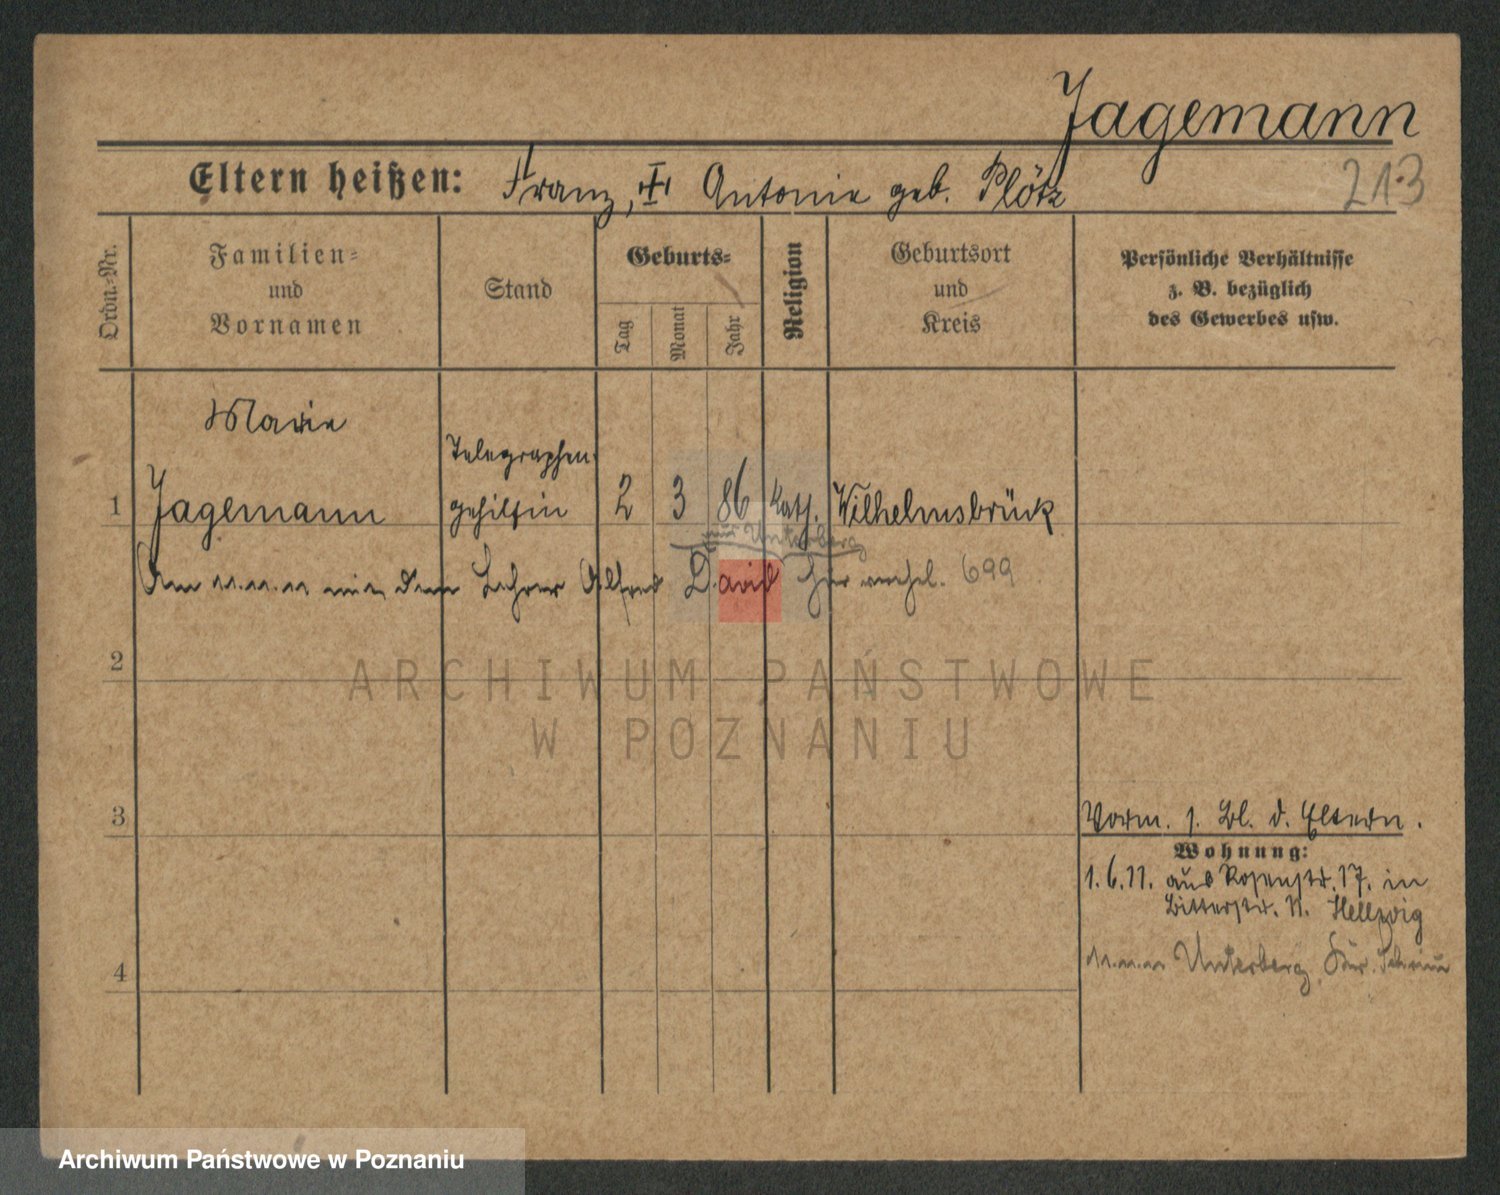 Jagemann
213
Eltern heißen: Franz, Antonie geb. Plötz
Ordn.-Nr.
Familien-
und
Vornamen
Stand
Geburts-
Tag
Monat
Jahr
Religion
Geburtsort
und
Kreis
Persönliche Verhältnisse
z. B. bezüglich
des Gewerbes usw.
Marie
1 Jagemann
Telegraphen-
gehilfin
2 3 86 kath. Wilhelmsbrück
aus Unterberg
Am 11.11.11 mit dem Lehrer Alfred David hier verehel. 699
2
3
4
Vorm. s. Bl. d. Eltern.
Wohnung:
1.6.11. aus Rosenstr. 17. in
Bitterstr. 11. Hellwig
11.11.11 Unterberg Kr. Schrimm
ARCHIWUM PAŃSTWOWE
W POZNANIU
Archiwum Państwowe w Poznaniu